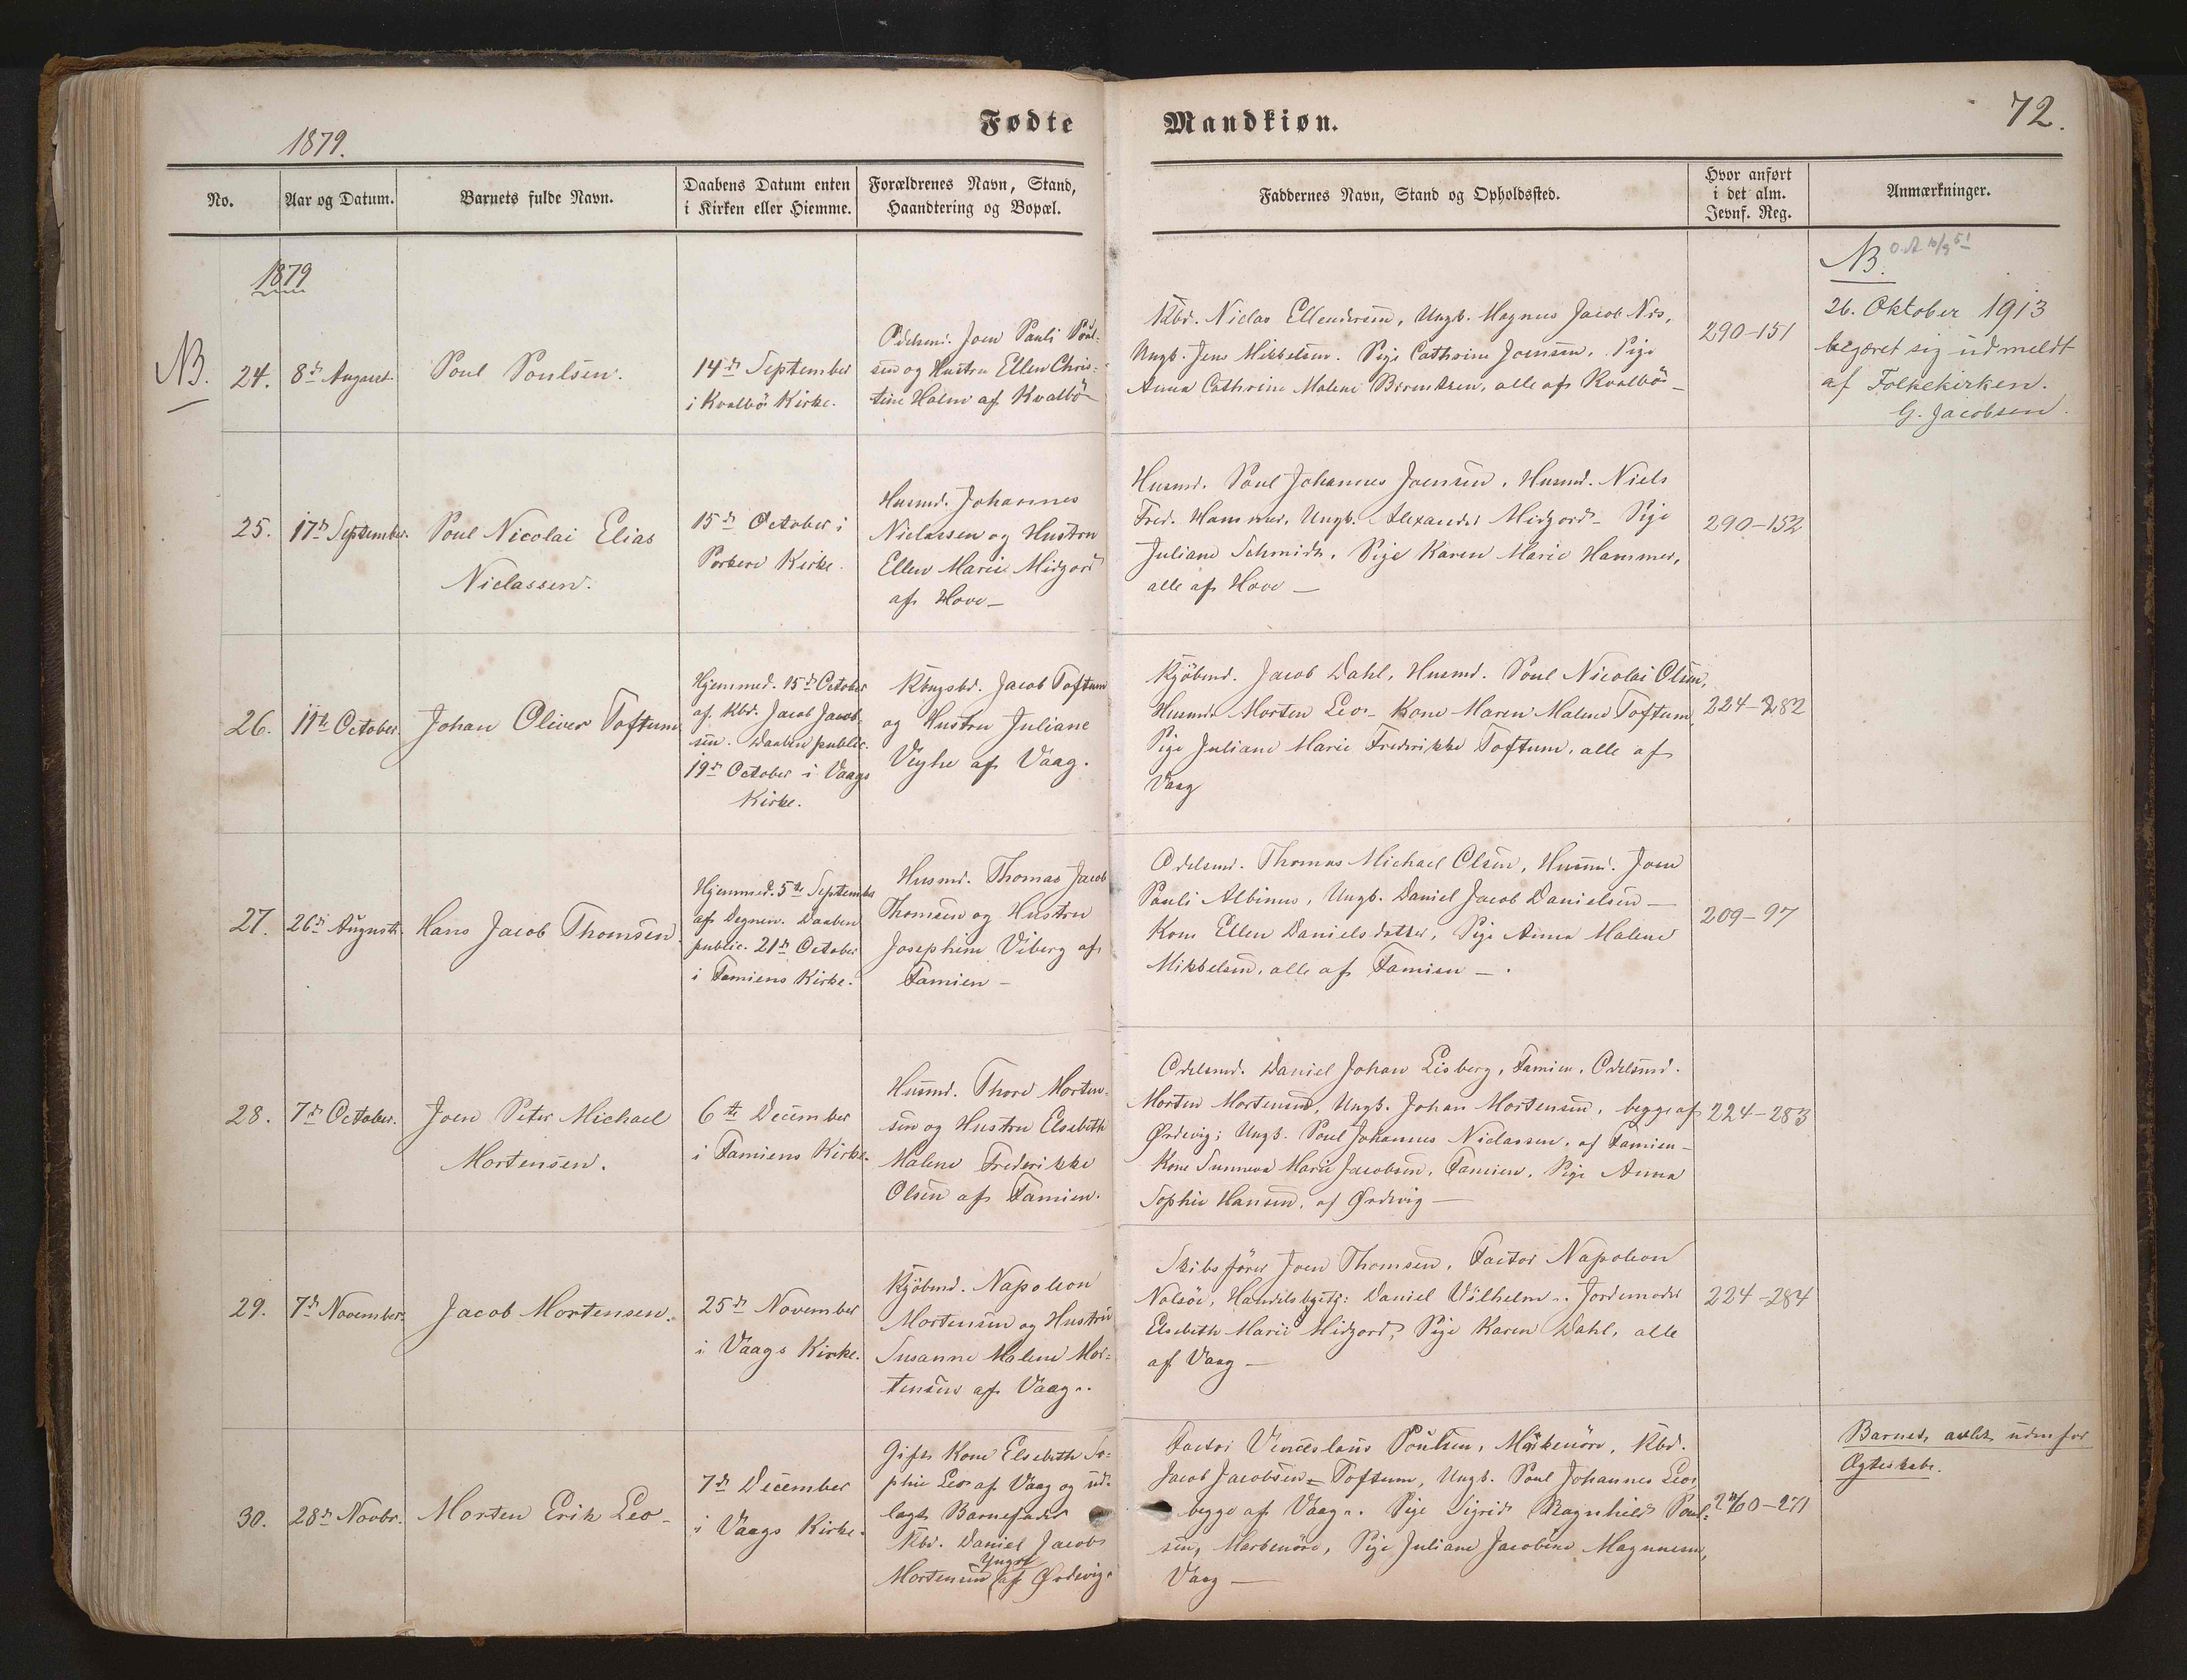 1879.
Fødte
Mandkiøn.
72.
No.
Aar og Datum.
Barnets fulde Navn.
Daabens Datum enten
i Kirken eller Hiemme.
Forældrenes Navn, Stand,
Haandtering og Bopæl.
Faddernes Navn, Stand og Opholdssted.
Hvor anført
i det alm.
Jevnf. Reg.
Anmærkninger.
1879
NB.
24.
8de August
Poul Poulsen.
14de September
i Kvalbö Kirke.
Odelsmd. Joen Pauli Poul-
sen og Hustru Ellen Chris-
tine Holm af Kvalbö
Kbd. Niclas Ellendersen, Ungk. Magnus Jacob Nis,
Ungk. Jens Mikkelsen. Pige Cathrine Joensen, Pige
Anna Cathrine Malene Berentsen, alle af Kvalbö –
290–151
NB.
26. Oktober 1913
begæret sig udmeldt
af Folkekirken.
G. Jacobsen.
25.
17de September.
Poul Nicolai Elias
Niclassen.
15de October i
Porkere Kirke.
Husmd. Johannes
Niclassen og Hustru
Ellen Marie Midjord
af Hove –
Husmd. Poul Johannes Joensen, Husmd. Niels
Fred. Hammer, Ungk. Alexander Midjord – Pige
Juliane Schmidt, Pige Karen Marie Hammer,
alle af Hove –
290–152
26.
11te October
Johan Oliver Toftum
Hjemmed. 15de October
af Kbd. Jacob Jacob-
sen. Daaben public.
19de October i Vaags
Kirke.
Kongsbd. Jacob Toftum
og Hustru Juliane
Vejhe af Vaag.
Kjöbmd. Jacob Dahl, Husmd. Poul Nicolai Olsen,
Husmd. Morten Leo – Kone Maren Malene Toftum,
Pige Juliane Marie Frederikke Toftum, alle af
Vaag
224–282
27.
26de August
Hans Jacob Thomsen.
Hjemmed. 5te September
af Degnen. Daaben
public. 21de October
i Famiens Kirke.
Husmd. Thomas Jacob
Thomsen og Hustru
Josephine Viberg af
Famien –
Odelsmd. Thomas Michael Olsen, Husmd. Joen
Pauli Albinus, Ungk. Daniel Jacob Danielsen –
Kone Ellen Danielsdatter, Pige Anna Malene
Mikkelsen, alle af Famien –.
209–97
28.
7de October.
Joen Peter Michael
Mortensen.
6te December
i Famiens Kirke.
Husmd. Thore Morten-
sen og Hustru Elsebeth
Malene Frederikke
Olsen af Famien.
Odelsmd. Daniel Johan Lisberg, Famien, Odelsmd.
Morten Mortensen, Ungk. Johan Mortensen, begge af
Ørdevig; Ungk. Poul Johannes Niclassen, af Famien –
Kone Sunneva Marie Jacobsen, Famien, Pige Anna
Sophie Hansen, af Ørdevig –
224–283
29.
7de November.
Jacob Mortensen.
25de November
i Vaags Kirke.
Kjöbmd. Napoleon
Mortensen og Hustru
Susanne Malene Mor-
tensen af Vaag..
Skibsfører Joen Thomsen, Factor Napoleon
Nolsöe, Handelsbetj: Daniel Vilhelm.. Jordemoder
Elsebeth Marie Midjord, Pige Karen Dahl, alle
af Vaag –
224–284
30.
28de Novbr.
Morten Erik Leo –
7de December
i Vaags Kirke.
Gift Kone Elsebeth So-
phie Leo af Vaag og ud-
lagt Barnefader
Kbd. Daniel Jacob
Mortensen Yngre af Ørdevig.
Factor Venceslaus Poulsen, Markenöre, Kbd.
Jacob Jacobsen Toftum, Ungk. Poul Johannes Leo,
begge af Vaag.. Pige Sigrid Ragnhild Poul-
sen, Markenöre, Pige Juliane Jacobine Magnussen,
Vaag –
260–271
Barnet avlet udenfor
Ægteskabe.